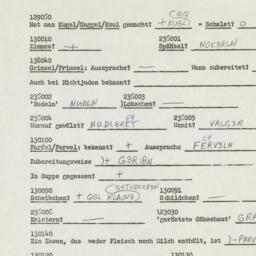 129060
Hat man Kugel/Guggel/Koul gemacht? + KUGL) = Schalet? O
130010 236001
Zimmes? + Spänzel? NOKERLN
138040
Grimsel/Frimsel: Aussprache? — Wann zubereitet?
Auch bei Nichtjuden bekannt?
236002 236003
'Nudeln' NUDLN )Lokschen? —
236004 236005
Worauf gewälzt? NUDLBRET Womit? VALGER
130100
Farfel/Farvel: bekannt? + Aussprache FERVELN
Zubereitungsweise )+ GERIBN
In Suppe gegessen? +
130090 130091
Scheibchen? + Schildchen? —
236006 123030
Knistern? — 'geröstete Gänsehaut'
130140
Ein Essen, das weder Fleisch noch Milch enthält, ist )-PARV
130120 130130